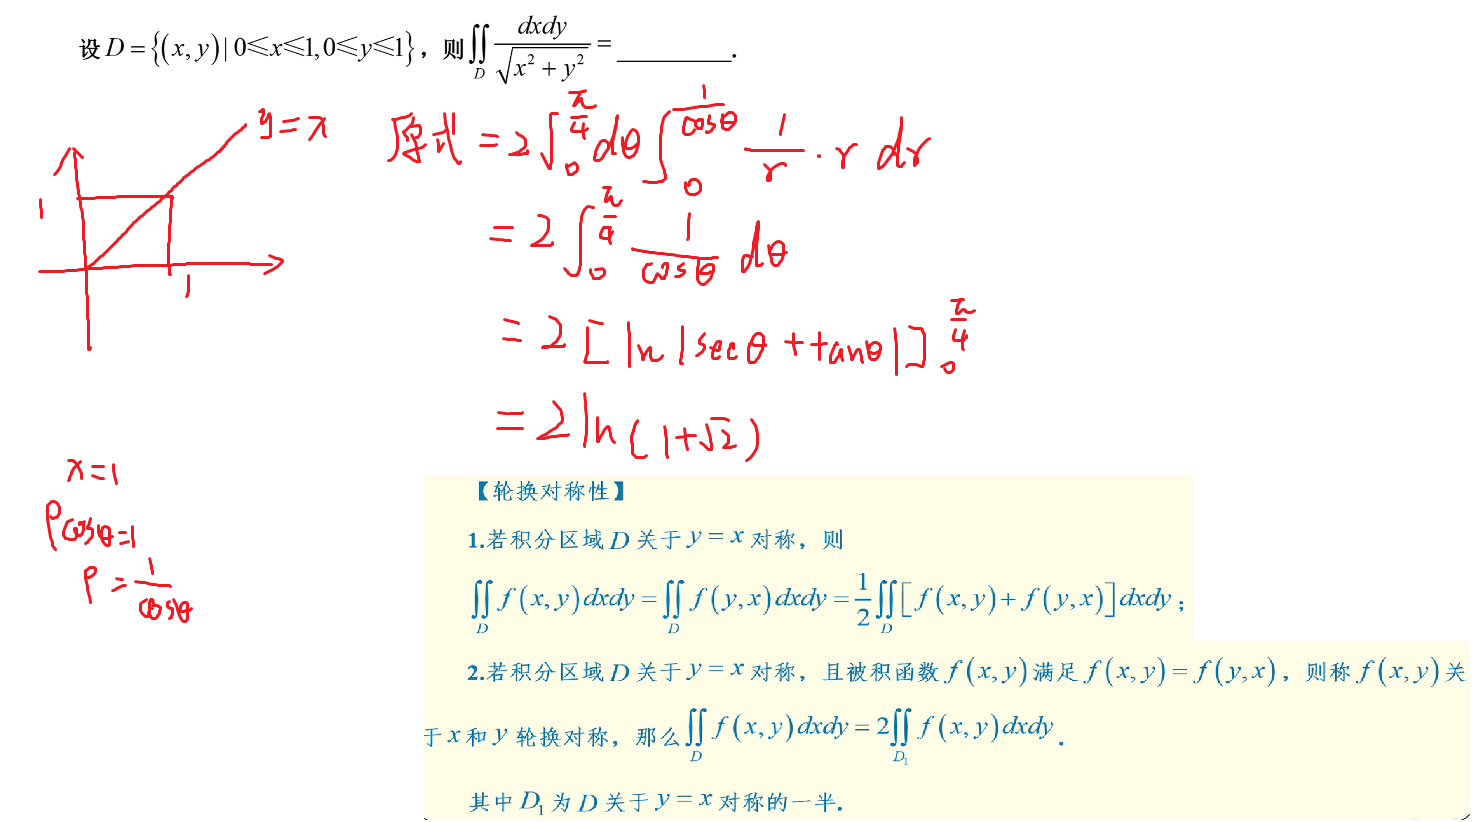 设 D = {(x, y) | 0≤x≤1, 0≤y≤1}，则 ∬_D dxdy/√(x² + y²) = ________.
y = x
1
1
原式 = 2∫_0^{π/4} dθ ∫_0^{1/cosθ} 1/r · r dr
= 2∫_0^{π/4} 1/cosθ dθ
= 2[ln|secθ + tanθ|]_0^{π/4}
= 2ln(1+√2)
x=1
ρcosθ=1
ρ = 1/cosθ
【轮换对称性】
1.若积分区域 D 关于 y = x 对称，则
∬_D f(x, y)dxdy = ∬_D f(y, x)dxdy = 1/2 ∬_D [f(x, y) + f(y, x)]dxdy；
2.若积分区域 D 关于 y = x 对称，且被积函数 f(x, y) 满足 f(x, y) = f(y, x)，则称 f(x, y) 关
于 x 和 y 轮换对称，那么 ∬_D f(x, y)dxdy = 2∬_{D₁} f(x, y)dxdy.
其中 D₁ 为 D 关于 y = x 对称的一半.